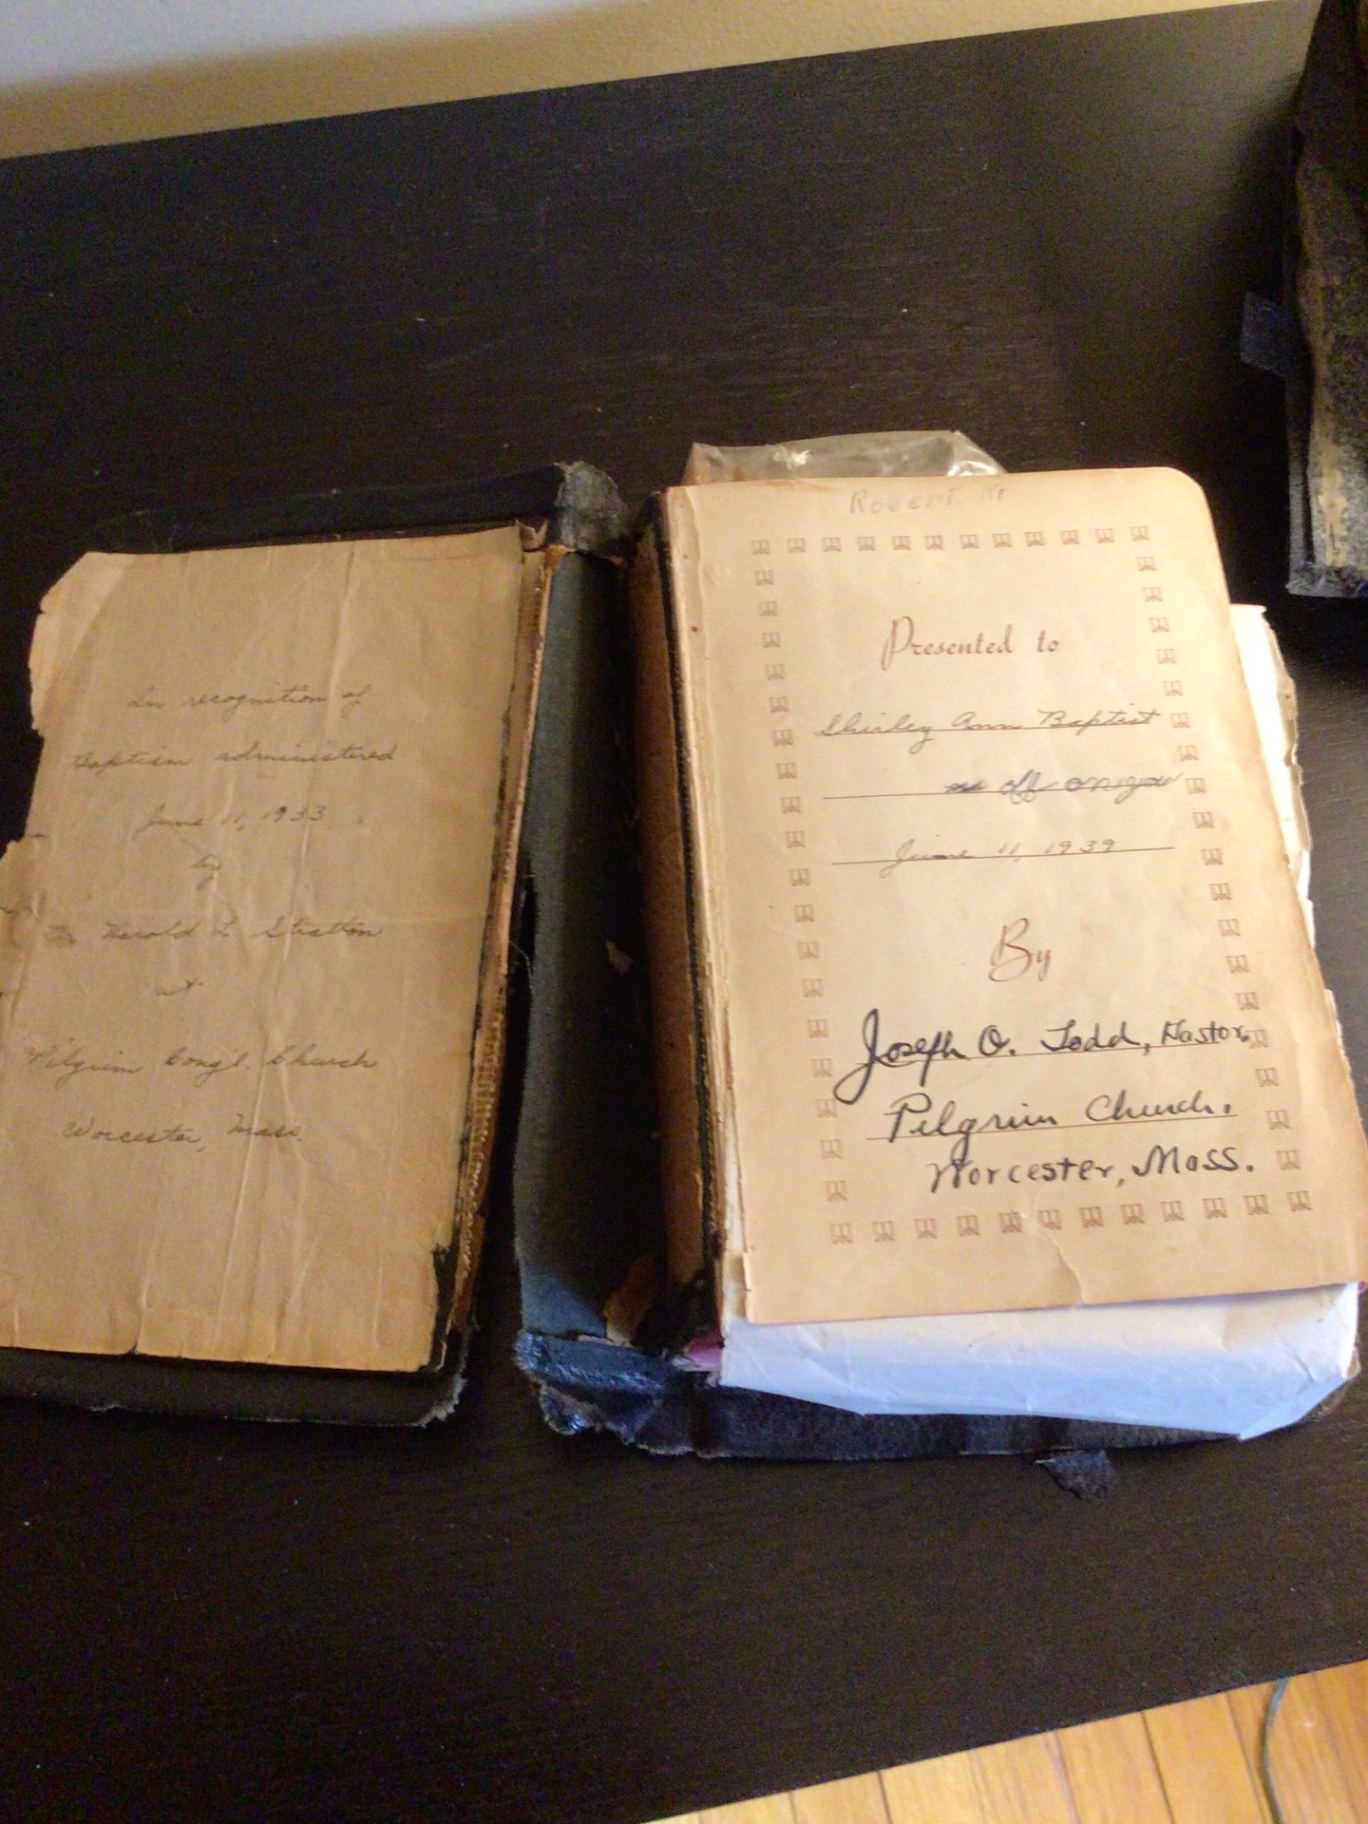 In recognition of
Baptism administered
June 11, 1933
by
Harold L Stratton
at
Pilgrim Cong'l. Church
Worcester, Mass.
Robert
Presented to
Shirley Ann Baptist
off
June 11, 1939
By
Joseph O. Todd, Pastor,
Pilgrim Church.
Worcester, Mass.